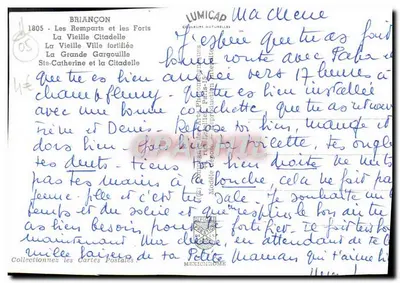 BRIANÇON
1805 - Les Remparts et les Forts
La Vieille Citadelle
La Vieille Ville fortifiée
La Grande Gargouille
Ste-Catherine et la Citadelle
LUMICAP
05
4€
Ma chérie
J'espère que tu as fait
bonne route avec Papa
que tu es bien arrivée vers 17 heures à
Champfleury que tu es bien installée
avec une bonne couchette, que tu as retrouvé
et Denis. Repose toi bien, mange et
dors bien. fais bien ta toilette, tes ongles
tes dents. tiens toi bien droite ne mets
pas tes mains à la bouche, cela ne fait pas
jeune fille et c'est très sale. Je souhaite un beau
temps et du soleil et que respires le bon air tu
as bien besoin pour te fortifier. Il fait très bon
maintenant. Ma chérie, en attendant de te
mille baisers de ta Petite Maman qui t'aime
Collectionnez les Cartes Postales
MEXICHROME